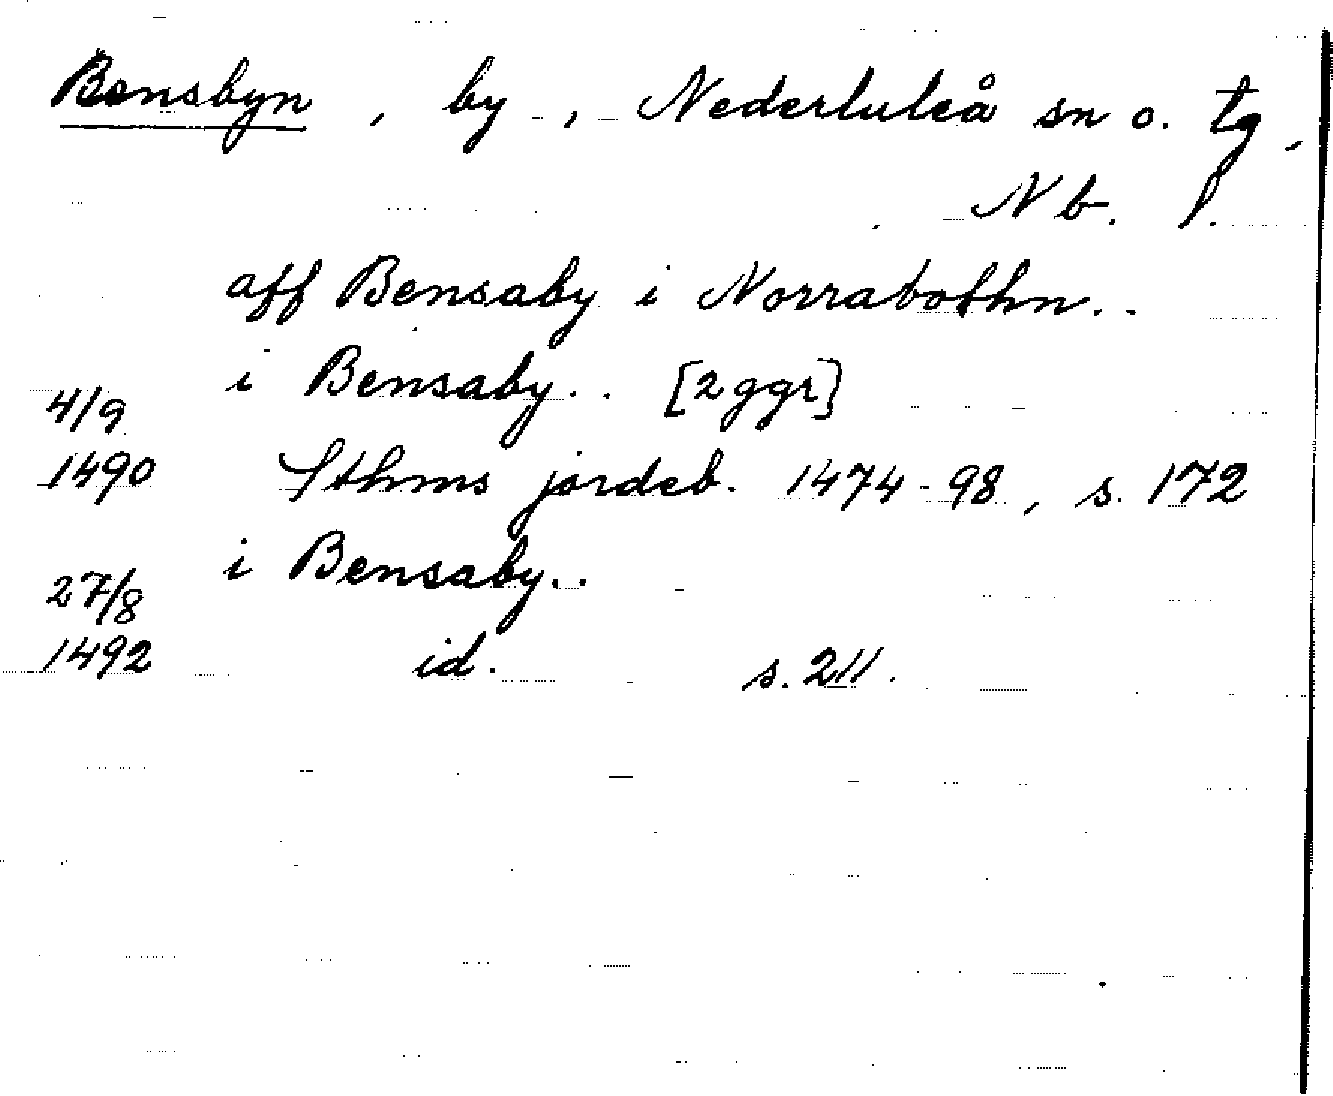 Bensbyn, by, Nederluleå sn o. tg,
Nb. l.
aff Bensaby i Norrabothn..
i Bensaby.. [2 ggr]
4/9
1490 Sthms jordeb. 1474-98, s. 172
i Bensaby..
27/8
1492 id. s. 211.